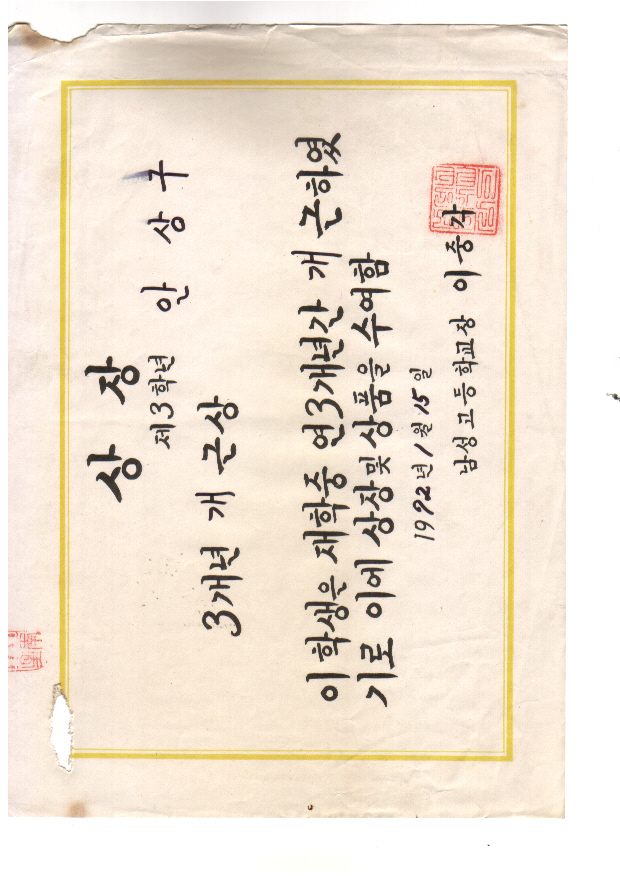 상 장
제3학년 안 상 구
3개년 개 근상
이 학생은 재학중 연3개년간 개 근하였
기로 이에 상장및 상품을 수여함
1992년 1월 15일
남성고등학교장 이중각